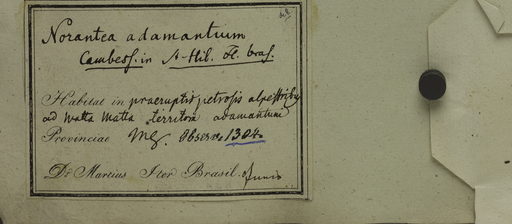 Norantea adamantium
Cambess. in A. Hil. Fl. bras.
Habitat in praeruptis petrosis alpestribus
ad Matta Matta territorii adamantium
Provinciae MG. Observ. 1304.
Dr. Martius Iter Brasil. Junio